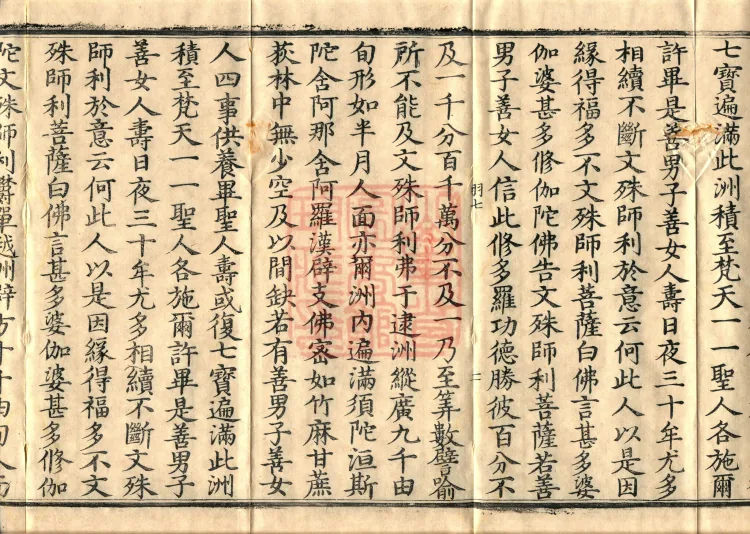 七寶遍滿此洲積至梵天一一聖人各施爾
許畢是善男子善女人壽日夜三十年尤多
相續不斷文殊師利於意云何此人以是因
緣得福多不文殊師利菩薩白佛言甚多婆
伽婆甚多修伽陀佛告文殊師利菩薩若善
男子善女人信此修多羅功德勝彼百分不
羽七
二
及一千分百千萬分不及一乃至筭數譬喻
所不能及文殊師利弗于逮洲縱廣九千由
旬形如半月人面亦爾洲內遍滿須陀洹斯
陀舍阿那舍阿羅漢辟支佛密如竹麻甘蔗
荻林中無少空及以間缺若有善男子善女
人四事供養畢聖人壽或復七寶遍滿此洲
積至梵天一一聖人各施爾許畢是善男子
善女人壽日夜三十年尤多相續不斷文殊
師利於意云何此人以是因緣得福多不文
殊師利菩薩白佛言甚多婆伽婆甚多修伽
陀文殊師利欝單越州辟方十千由旬人面